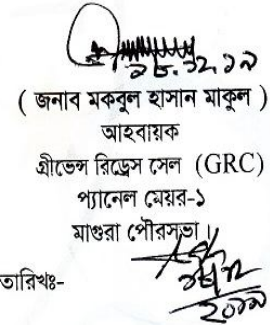 ১৮.১২.১৯
( জনাব মকবুল হাসান মাকুল )
আহবায়ক
গ্রীভেন্স রিড্রেস সেল (GRC)
প্যানেল মেয়র-১
মাগুরা পৌরসভা।
তারিখঃ-
১৮/১২
২০১৯